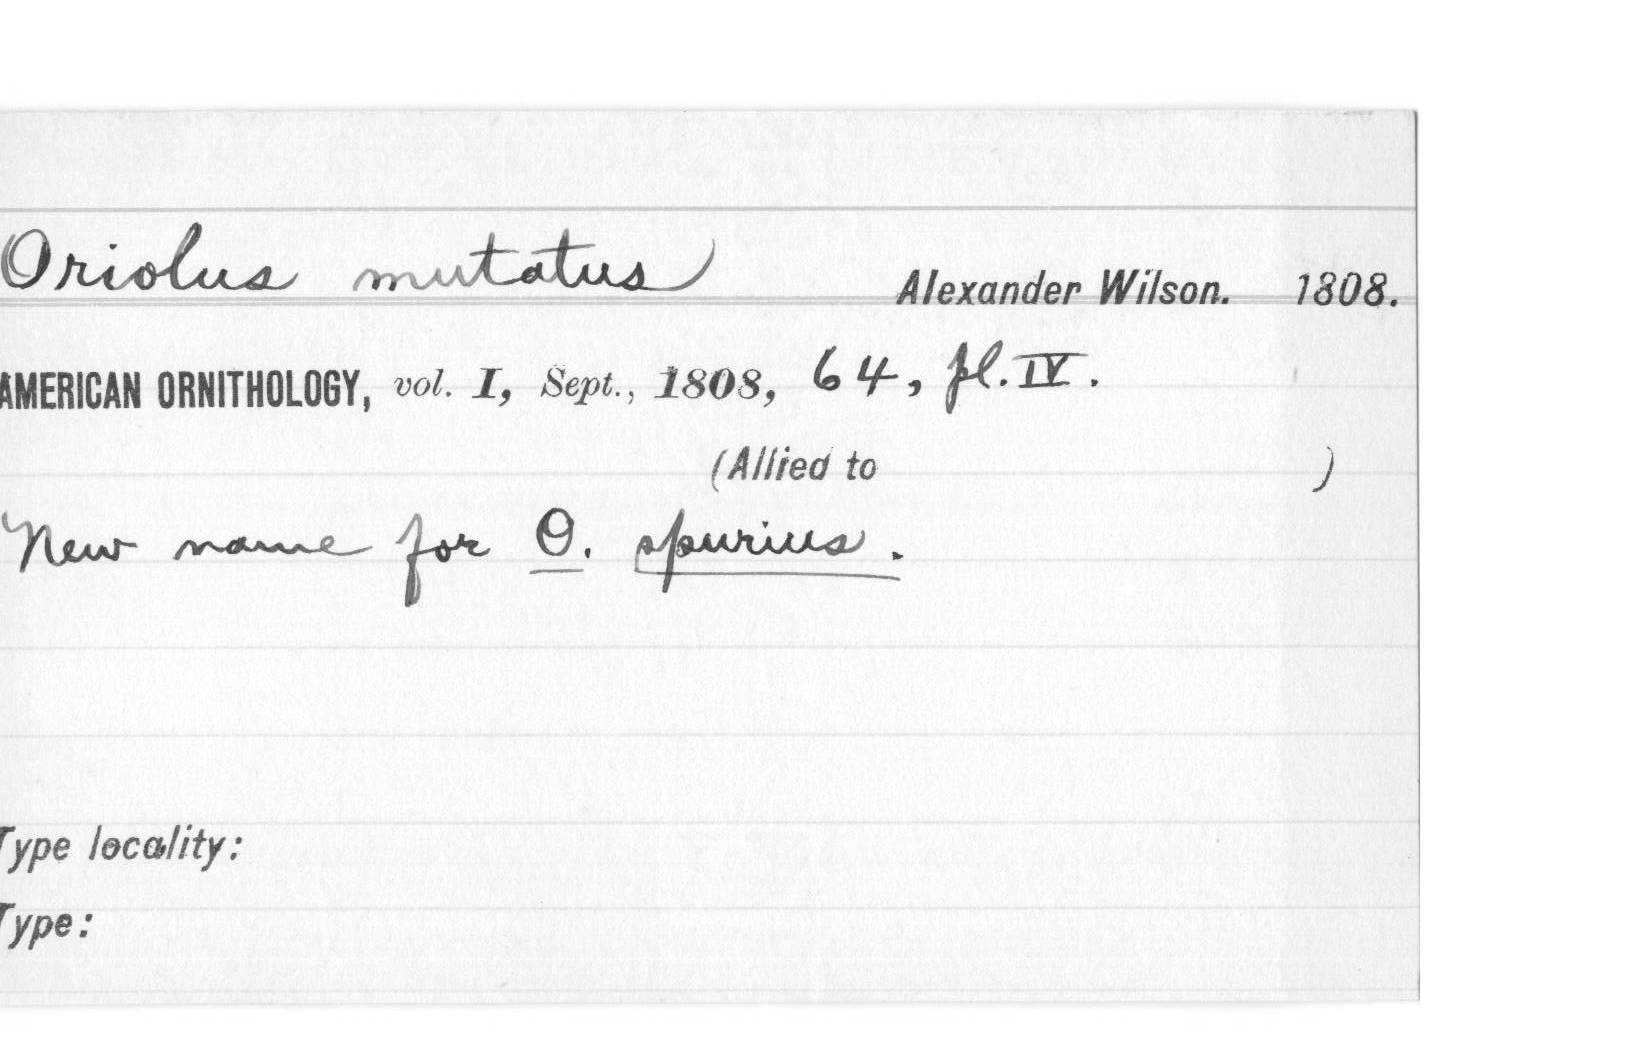 Oriolus mutatus Alexander Wilson. 1808.
AMERICAN ORNITHOLOGY, vol. I, Sept., 1808, 64, pl. IV.
(Allied to )
New name for O. spurius.
Type locality:
Type: